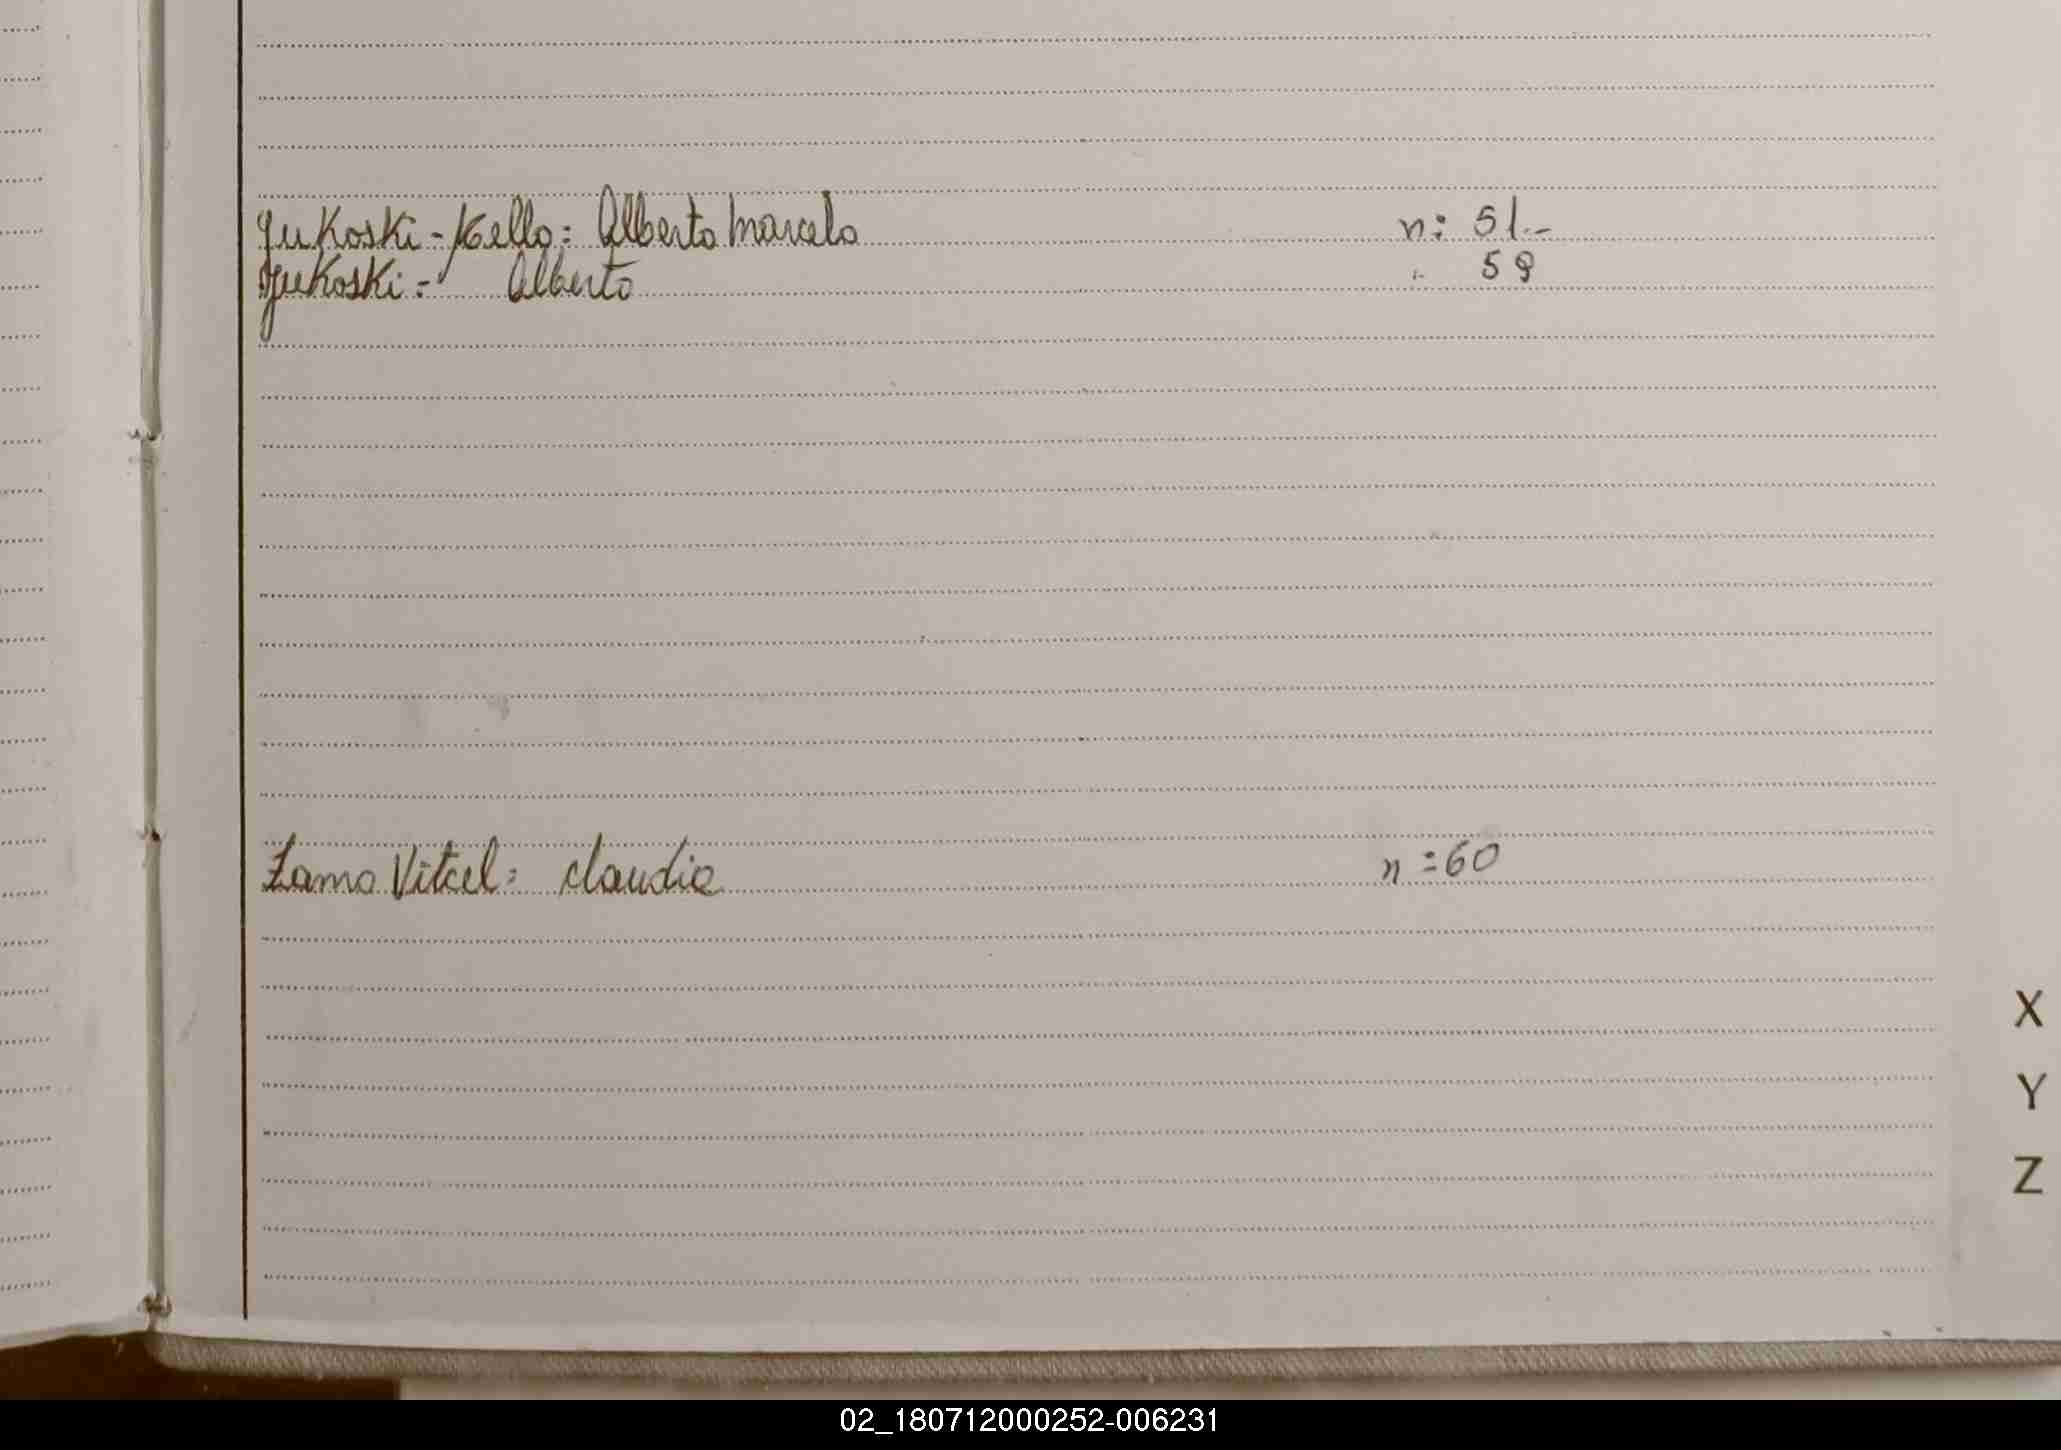 Yukoski - Kello: Alberto Marcelo n: 51.-
Yukoski = Alberto " 59
Zama Vitcel: Claudia n = 60
X
Y
Z
02_180712000252-006231